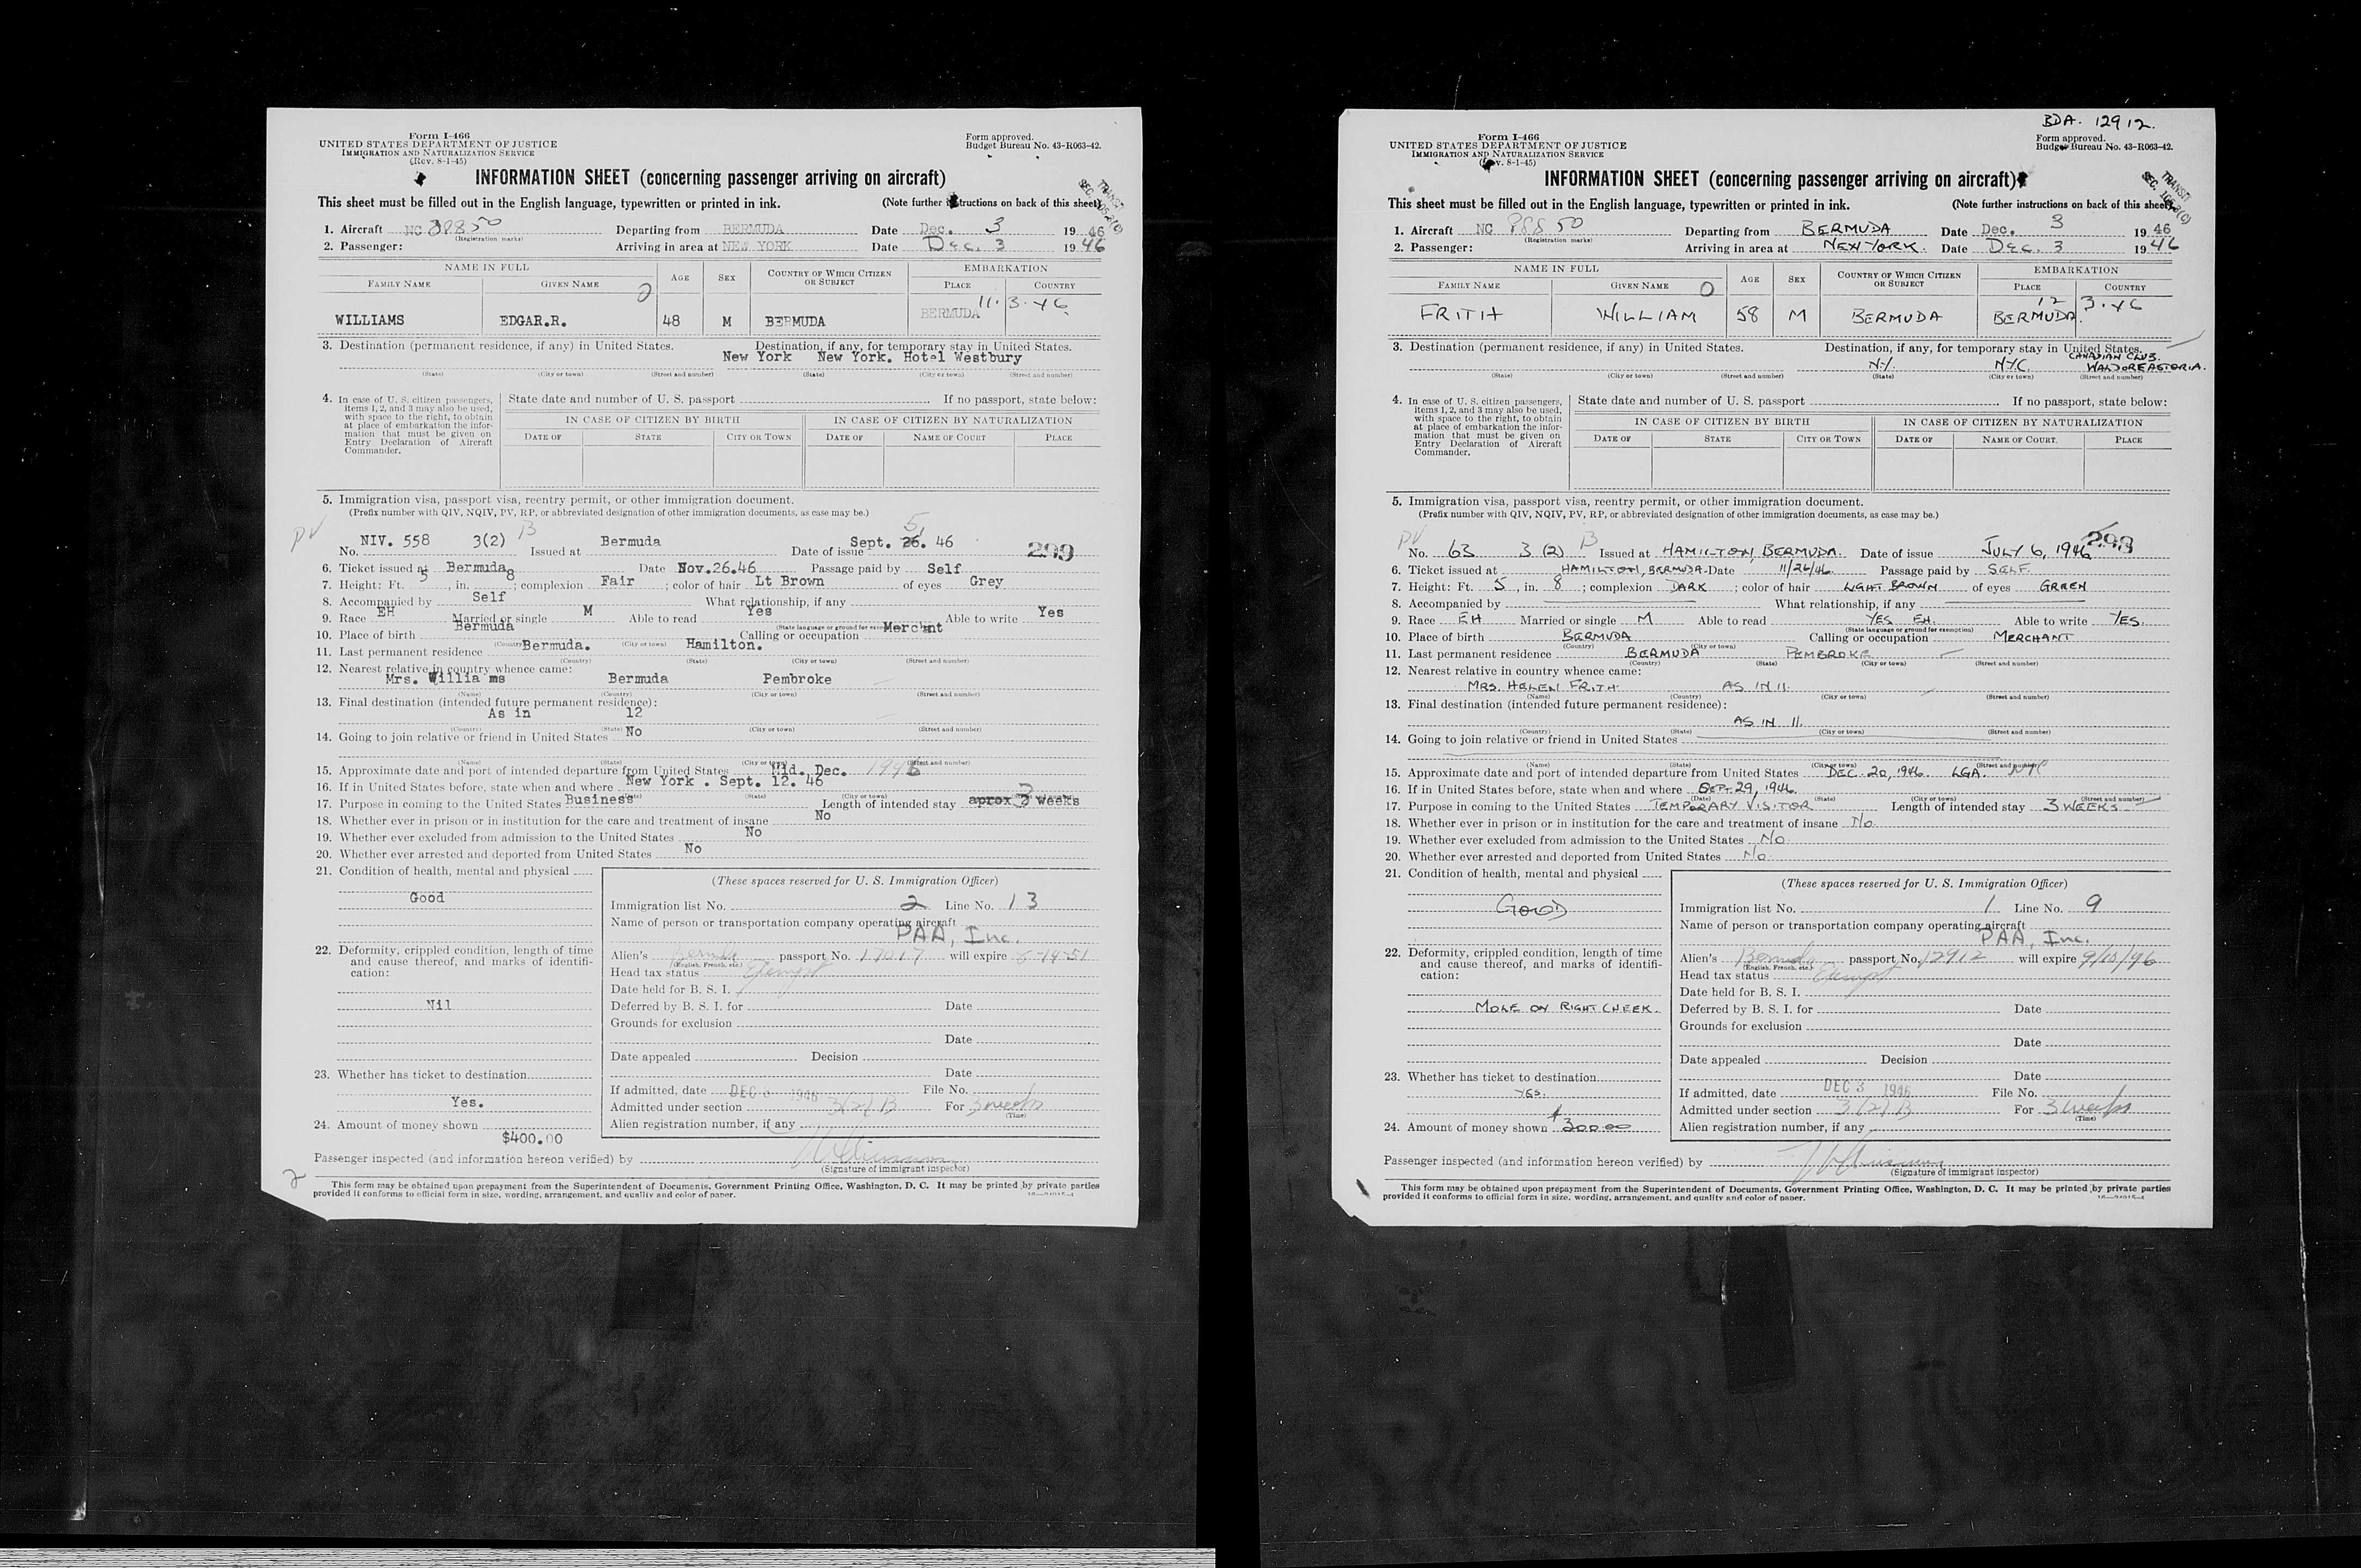 Form I-466
UNITED STATES DEPARTMENT OF JUSTICE
IMMIGRATION AND NATURALIZATION SERVICE
(Rev. 8-1-45)
Form approved.
Budget Bureau No. 43-R063-42.
INFORMATION SHEET (concerning passenger arriving on aircraft)
This sheet must be filled out in the English language, typewritten or printed in ink.
(Note further instructions on back of this sheet)
TRANSIT
1. Aircraft NC 88850 Departing from BERMUDA Date Dec. 3 1946
(Registration marks)
2. Passenger: Arriving in area at NEW YORK Date Dec. 3 1946
NAME IN FULL AGE SEX COUNTRY OF WHICH CITIZEN OR SUBJECT EMBARKATION
FAMILY NAME GIVEN NAME PLACE COUNTRY
11.3.46
WILLIAMS EDGAR.R. 48 M BERMUDA BERMUDA
3. Destination (permanent residence, if any) in United States. Destination, if any, for temporary stay in United States.
New York New York. Hotel Westbury
(State) (City or town) (Street and number) (State) (City or town) (Street and number)
4. In case of U. S. citizen passengers, items 1, 2, and 3 may also be used, with space to the right, to obtain at place of embarkation the information that must be given on Entry Declaration of Aircraft Commander.
State date and number of U. S. passport If no passport, state below:
IN CASE OF CITIZEN BY BIRTH IN CASE OF CITIZEN BY NATURALIZATION
DATE OF STATE CITY OR TOWN DATE OF NAME OF COURT PLACE
5. Immigration visa, passport visa, reentry permit, or other immigration document.
(Prefix number with QIV, NQIV, PV, RP, or abbreviated designation of other immigration documents, as case may be.)
PV
No. NIV. 558 3(2) B Issued at Bermuda Date of issue Sept. 26. 5, 46 299
6. Ticket issued at Bermuda Date Nov.26.46 Passage paid by Self
7. Height: Ft. 5, in. 8; complexion Fair; color of hair Lt Brown of eyes Grey
8. Accompanied by Self What relationship, if any
9. Race EH Married or single M Able to read Yes Able to write Yes
(State language or ground for exemption)
10. Place of birth Bermuda Calling or occupation Merchnt
(Country) (City or town)
11. Last permanent residence Bermuda. Hamilton.
(Country) (State) (City or town) (Street and number)
12. Nearest relative in country whence came:
Mrs. Willia ms Bermuda Pembroke
(Name) (Country) (City or town) (Street and number)
13. Final destination (intended future permanent residence):
As in 12
(Country) (State) (City or town) (Street and number)
14. Going to join relative or friend in United States No
(Name) (State) (City or town) (Street and number)
15. Approximate date and port of intended departure from United States Mid. Dec. 1946
16. If in United States before, state when and where New York . Sept. 12. 46
(Date) (State) (City or town) (Street and number)
17. Purpose in coming to the United States Business Length of intended stay aprox 3 weeks
18. Whether ever in prison or in institution for the care and treatment of insane No
19. Whether ever excluded from admission to the United States No
20. Whether ever arrested and deported from United States No
21. Condition of health, mental and physical
Good
22. Deformity, crippled condition, length of time and cause thereof, and marks of identification:
Nil
23. Whether has ticket to destination
Yes.
24. Amount of money shown
$400.00
(These spaces reserved for U. S. Immigration Officer)
Immigration list No. 2 Line No. 13
Name of person or transportation company operating aircraft
PAA, Inc.
Alien's Bermuda passport No. 17017 will expire 5-14-51
(English, French, etc.)
Head tax status Exempt
Date held for B. S. I.
Deferred by B. S. I. for Date
Grounds for exclusion
Date
Date appealed Decision
Date
If admitted, date DEC 3 1946 File No.
Admitted under section 3(2) B For 3 weeks
(Time)
Alien registration number, if any
Passenger inspected (and information hereon verified) by
(Signature of immigrant inspector)
2
This form may be obtained upon prepayment from the Superintendent of Documents, Government Printing Office, Washington, D. C. It may be printed by private parties
provided it conforms to official form in size, wording, arrangement, and quality and color of paper.
BDA. 12912.
Form I-466
UNITED STATES DEPARTMENT OF JUSTICE
IMMIGRATION AND NATURALIZATION SERVICE
(Rev. 8-1-45)
Form approved.
Budget Bureau No. 43-R063-42.
INFORMATION SHEET (concerning passenger arriving on aircraft)
This sheet must be filled out in the English language, typewritten or printed in ink.
(Note further instructions on back of this sheet)
TRANSIT
1. Aircraft NC 88850 Departing from BERMUDA Date Dec. 3 1946
(Registration marks)
2. Passenger: Arriving in area at NEW YORK. Date Dec. 3 1946
NAME IN FULL AGE SEX COUNTRY OF WHICH CITIZEN OR SUBJECT EMBARKATION
FAMILY NAME GIVEN NAME PLACE COUNTRY
12 3.46
FRITH WILLIAM 58 M BERMUDA BERMUDA.
3. Destination (permanent residence, if any) in United States. Destination, if any, for temporary stay in United States.
N.Y. N.Y.C. CANADIAN CLUB. WALDOREASTORIA.
(State) (City or town) (Street and number) (State) (City or town) (Street and number)
4. In case of U. S. citizen passengers, items 1, 2, and 3 may also be used, with space to the right, to obtain at place of embarkation the information that must be given on Entry Declaration of Aircraft Commander.
State date and number of U. S. passport If no passport, state below:
IN CASE OF CITIZEN BY BIRTH IN CASE OF CITIZEN BY NATURALIZATION
DATE OF STATE CITY OR TOWN DATE OF NAME OF COURT. PLACE
5. Immigration visa, passport visa, reentry permit, or other immigration document.
(Prefix number with QIV, NQIV, PV, RP, or abbreviated designation of other immigration documents, as case may be.)
PV
No. 63 3 (2) B Issued at HAMILTON, BERMUDA. Date of issue JULY 6, 1946 298
6. Ticket issued at HAMILTON, BERMUDA. Date 11/26/46. Passage paid by SELF.
7. Height: Ft. 5, in. 8; complexion DARK; color of hair LIGHT BROWN of eyes GREEN
8. Accompanied by What relationship, if any
9. Race EH Married or single M Able to read YES EH. Able to write YES.
(State language or ground for exemption)
10. Place of birth BERMUDA Calling or occupation MERCHANT
(Country) (City or town)
11. Last permanent residence BERMUDA PEMBROKE
(Country) (State) (City or town) (Street and number)
12. Nearest relative in country whence came:
MRS. HELEN FRITH. AS IN 11.
(Name) (Country) (City or town) (Street and number)
13. Final destination (intended future permanent residence):
AS IN 11.
(Country) (State) (City or town) (Street and number)
14. Going to join relative or friend in United States
(Name) (State) (City or town) (Street and number)
15. Approximate date and port of intended departure from United States DEC. 20, 1946. LGA. NYC
16. If in United States before, state when and where SEPT. 29, 1946.
(Date) (State) (City or town) (Street and number)
17. Purpose in coming to the United States TEMPORARY VISITOR Length of intended stay 3 WEEKS
18. Whether ever in prison or in institution for the care and treatment of insane No.
19. Whether ever excluded from admission to the United States No.
20. Whether ever arrested and deported from United States No.
21. Condition of health, mental and physical
GOOD
22. Deformity, crippled condition, length of time and cause thereof, and marks of identification:
MOLE ON RIGHT CHEEK.
23. Whether has ticket to destination
YES.
24. Amount of money shown $300.00
(These spaces reserved for U. S. Immigration Officer)
Immigration list No. 1 Line No. 9
Name of person or transportation company operating aircraft
PAA, Inc.
Alien's Bermuda passport No. 12912 will expire 9/10/46
(English, French, etc.)
Head tax status Exempt
Date held for B. S. I.
Deferred by B. S. I. for Date
Grounds for exclusion
Date
Date appealed Decision
Date
If admitted, date DEC 3 1946 File No.
Admitted under section 3(2) B For 3 weeks
(Time)
Alien registration number, if any
Passenger inspected (and information hereon verified) by
(Signature of immigrant inspector)
This form may be obtained upon prepayment from the Superintendent of Documents, Government Printing Office, Washington, D. C. It may be printed by private parties
provided it conforms to official form in size, wording, arrangement, and quality and color of paper.